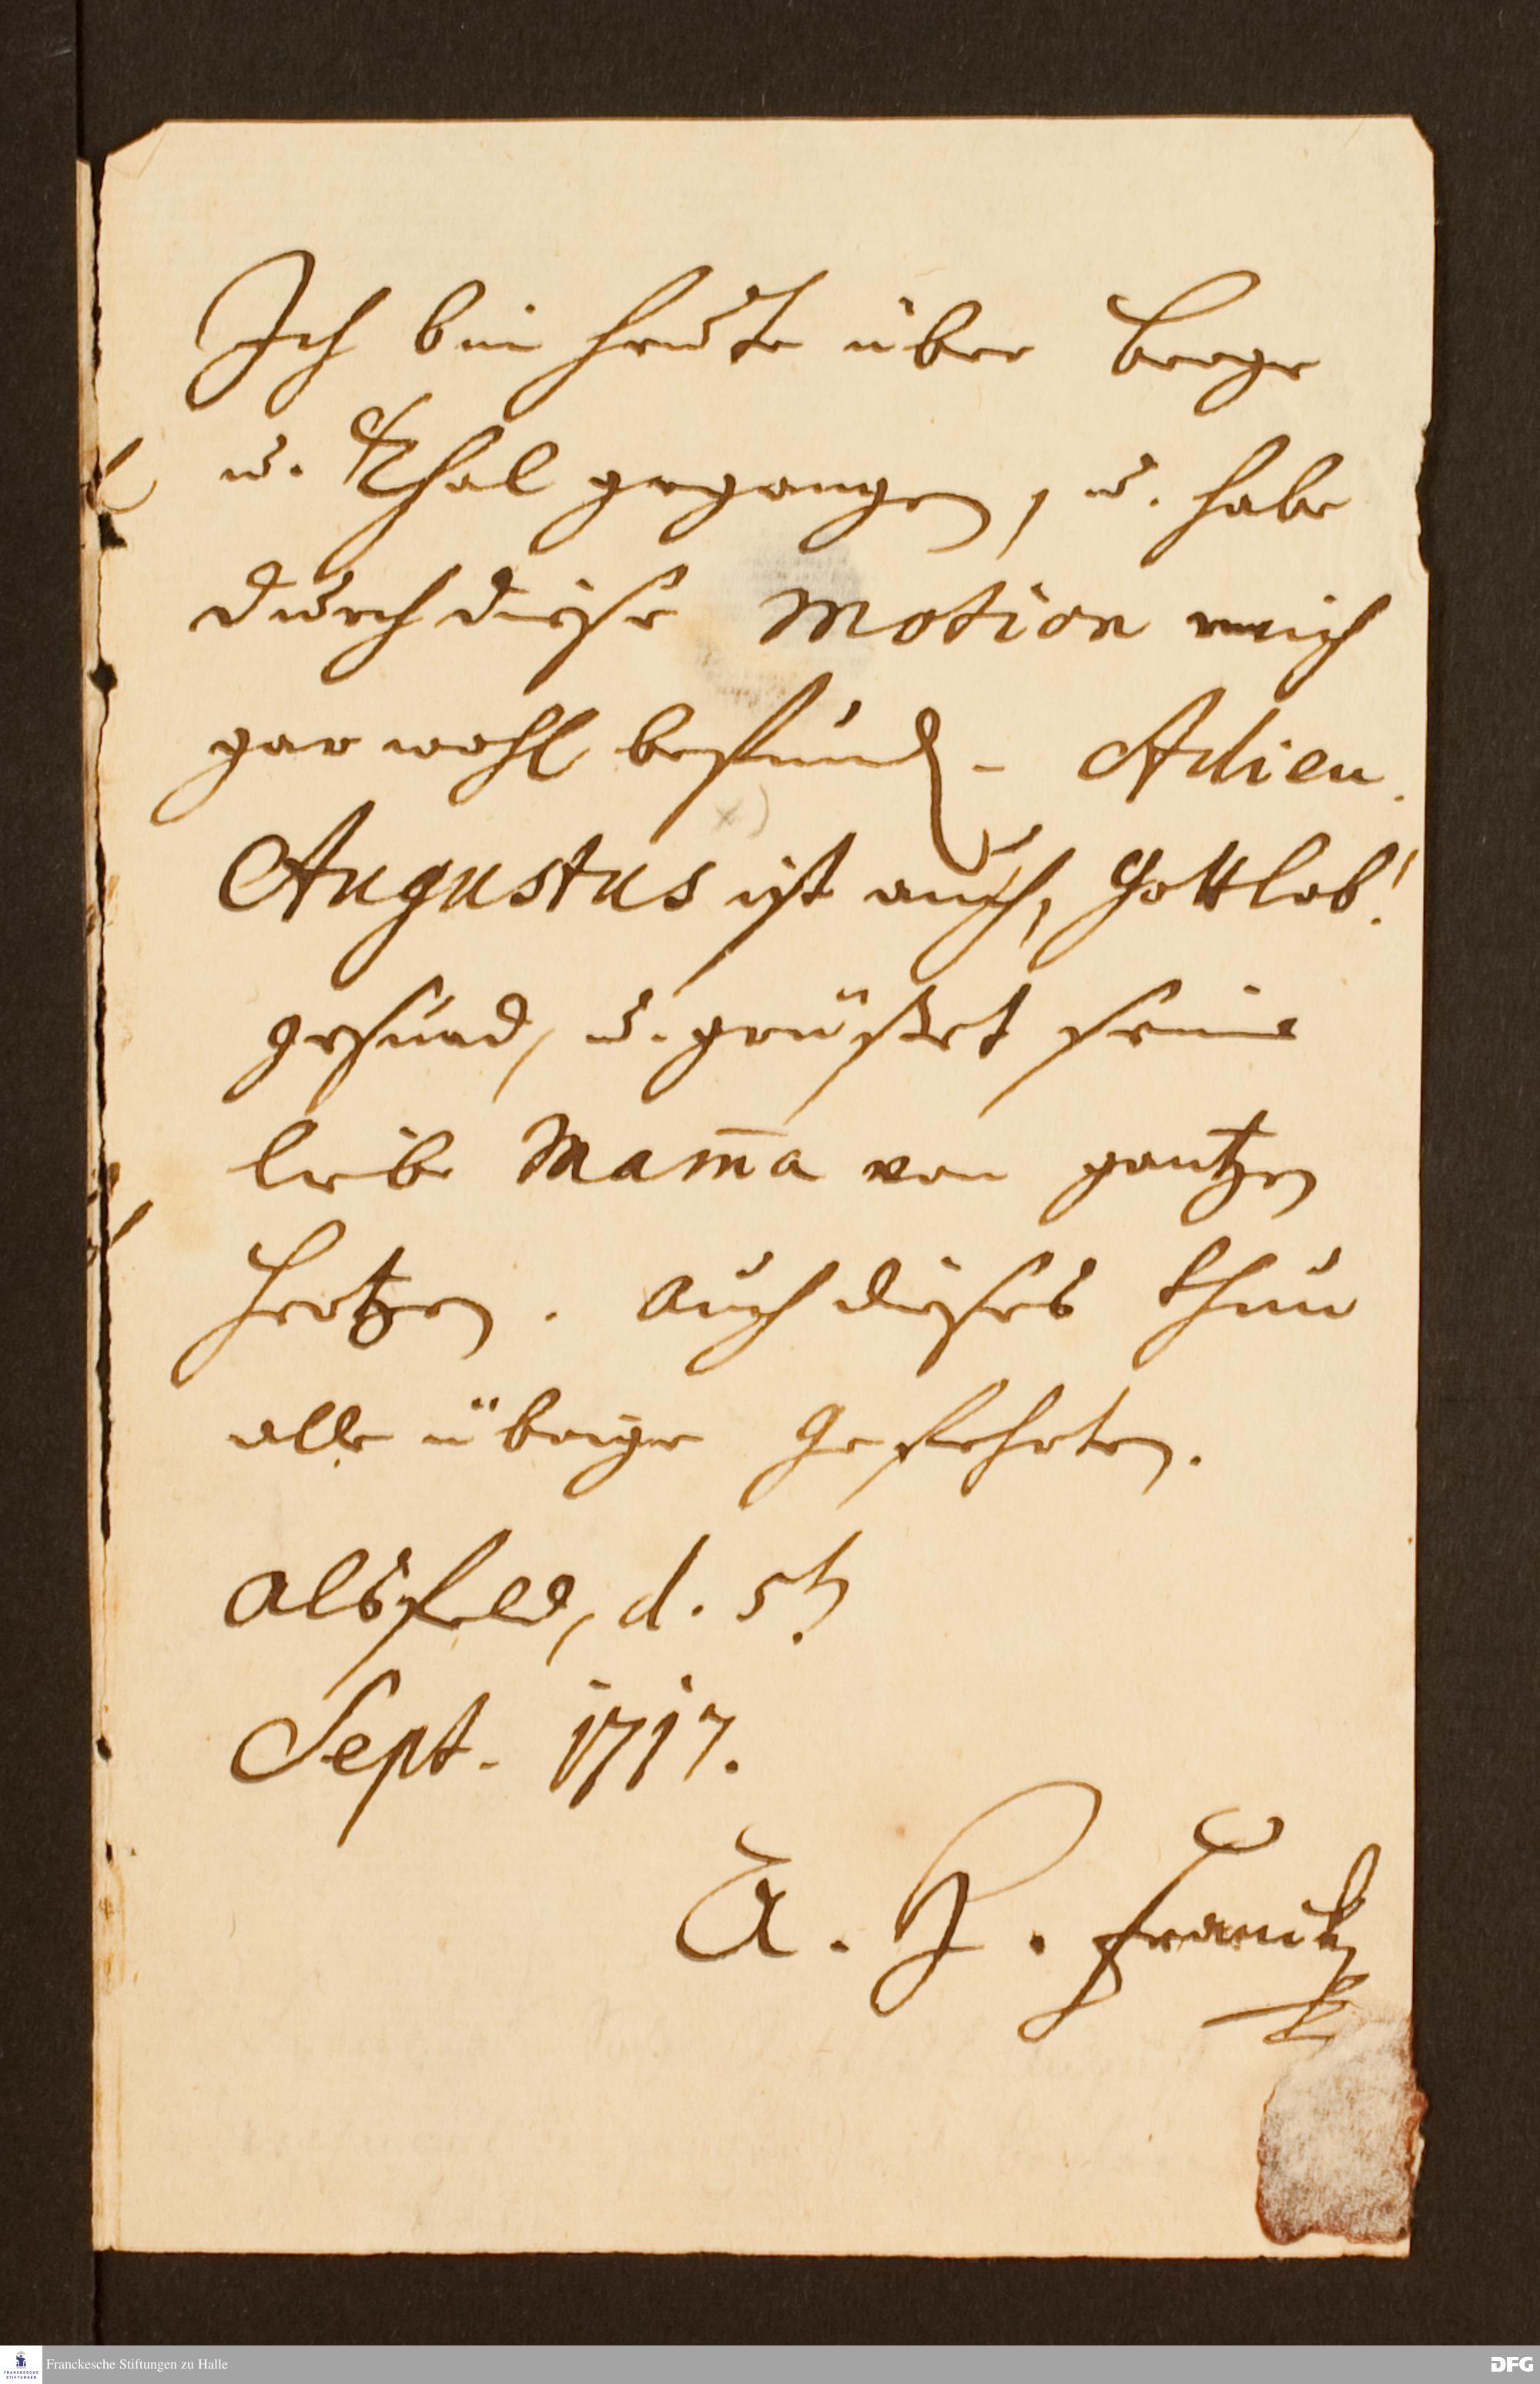 Ich bin heute über Berge
u. Thal gegangen, u. habe
durch diese Motion mich
gar wohl befund. Adieu.
Augustus ist auch, Gottlob!
gesund, u. grüßet seine
liebe Mam̄a von gantzen
Hertzen. Auch dieses thun
alle übrige Gefehrten.
Alsfeld, d. 5t.
Sept. 1717.
A. H. Franck
Franckesche Stiftungen zu Halle
FRANCKESCHE
STIFTUNGEN
DFG